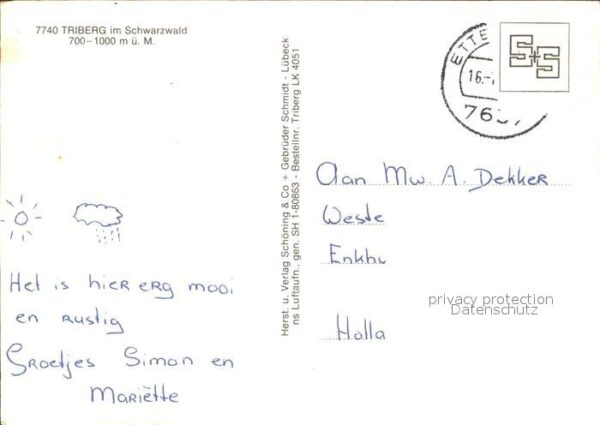 7740 TRIBERG im Schwarzwald
700–1000 m ü. M.
Het is hier erg mooi
en rustig
Groetjes Simon en
Mariëtte
Herst. u. Verlag Schöning & Co + Gebrüder Schmidt - Lübeck
ns Luftaufn., gen. SH 1-80863 - Bestellnr. Triberg LK 4051
ETTE
16.-
76
S+S
Aan Mw. A. Dekker
Weste
Enkhu
Holla
privacy protection
Datenschutz